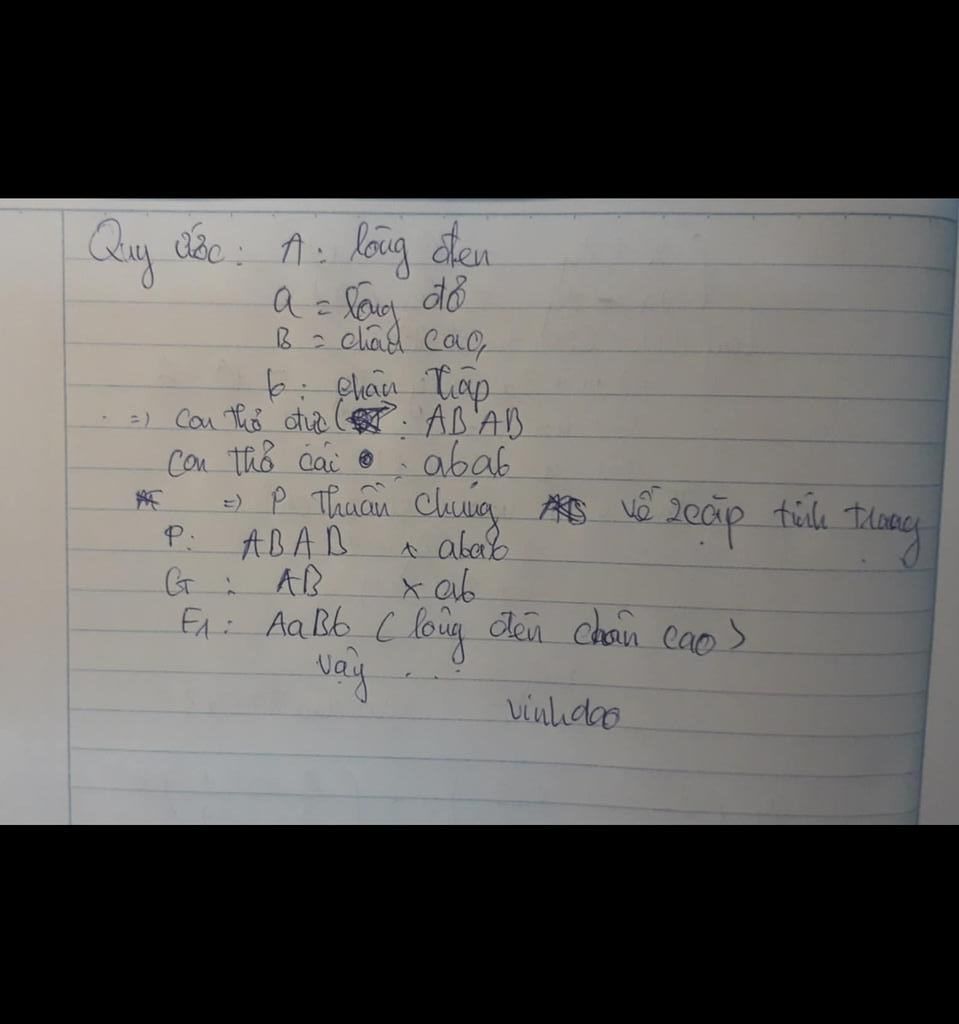 Quy ước: A: lông đen
a = lông đỏ
B = chân cao,
b: chân thấp
=> con thỏ đực ( : ABAB
con thỏ cái : abab
=> P thuần chủng về 2 cặp tính trạng
P: ABAB x abab
G: AB x ab
F1: AaBb (lông đen chân cao)
vậy ...
vinhdao